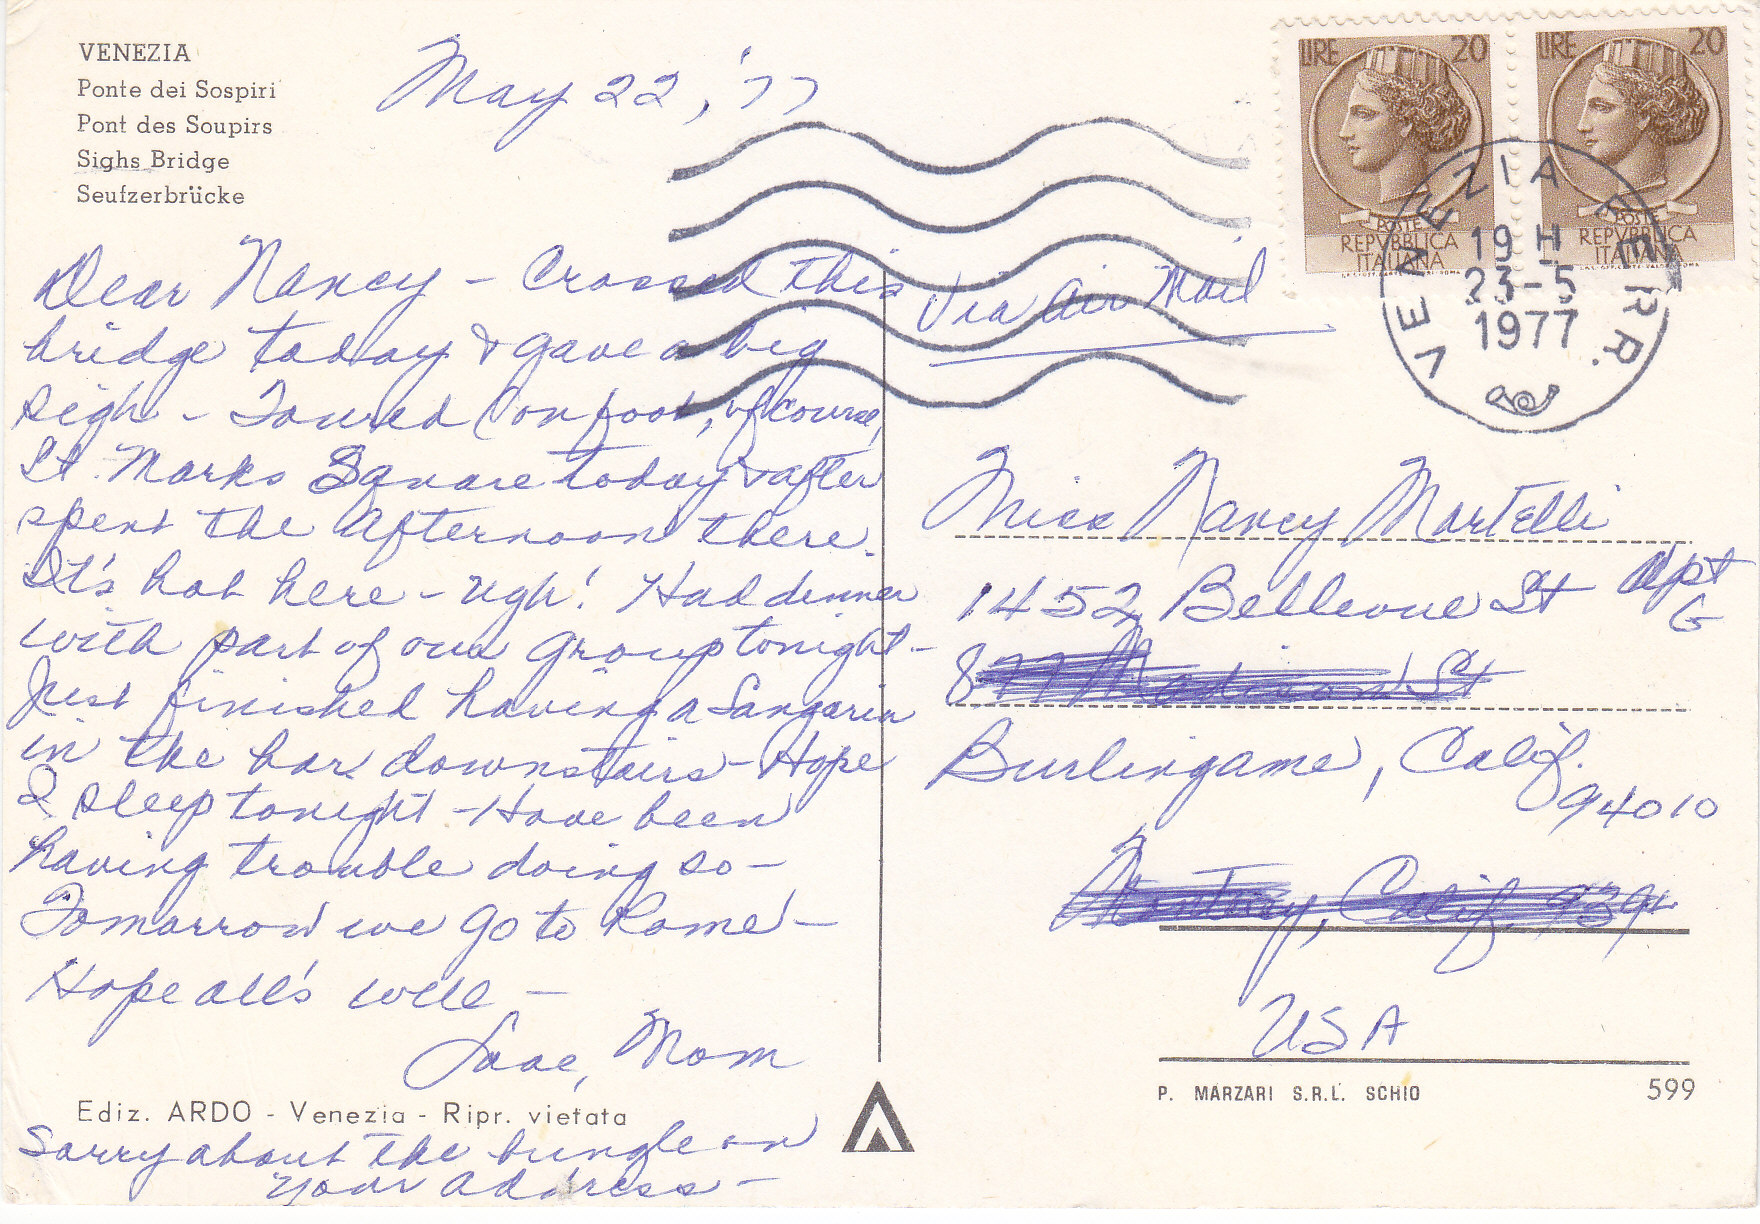 VENEZIA
Ponte dei Sospiri
Pont des Soupirs
Sighs Bridge
Seufzerbrücke
May 22, '77
Dear Nancy - Crossed this
bridge today & gave a big
sigh - Toured (on foot, of course,
St. Marks Square today & after
spent the afternoon there.
It's hot here - ugh! Had dinner
with part of our group tonight -
Just finished having a Sangaria
in the bar downstairs - Hope
I sleep tonight - Have been
having trouble doing so -
Tomorrow we go to Rome -
Hope all's well -
Love, Mom
Ediz. ARDO - Venezia - Ripr. vietata
Sorry about the bungle on
your address -
LIRE 20
POSTE
REPVBBLICA
ITALIANA
LIRE 20
POSTE
REPVBBLICA
ITALIANA
VENEZIA FERR.
19 H
23-5
1977
Via Air Mail
Miss Nancy Martelli
1452 Bellevue St Apt
G
877 Madison St
Burlingame, Calif.
94010
Monterey, Calif. 939
USA
P. MARZARI S.R.L. SCHIO
599